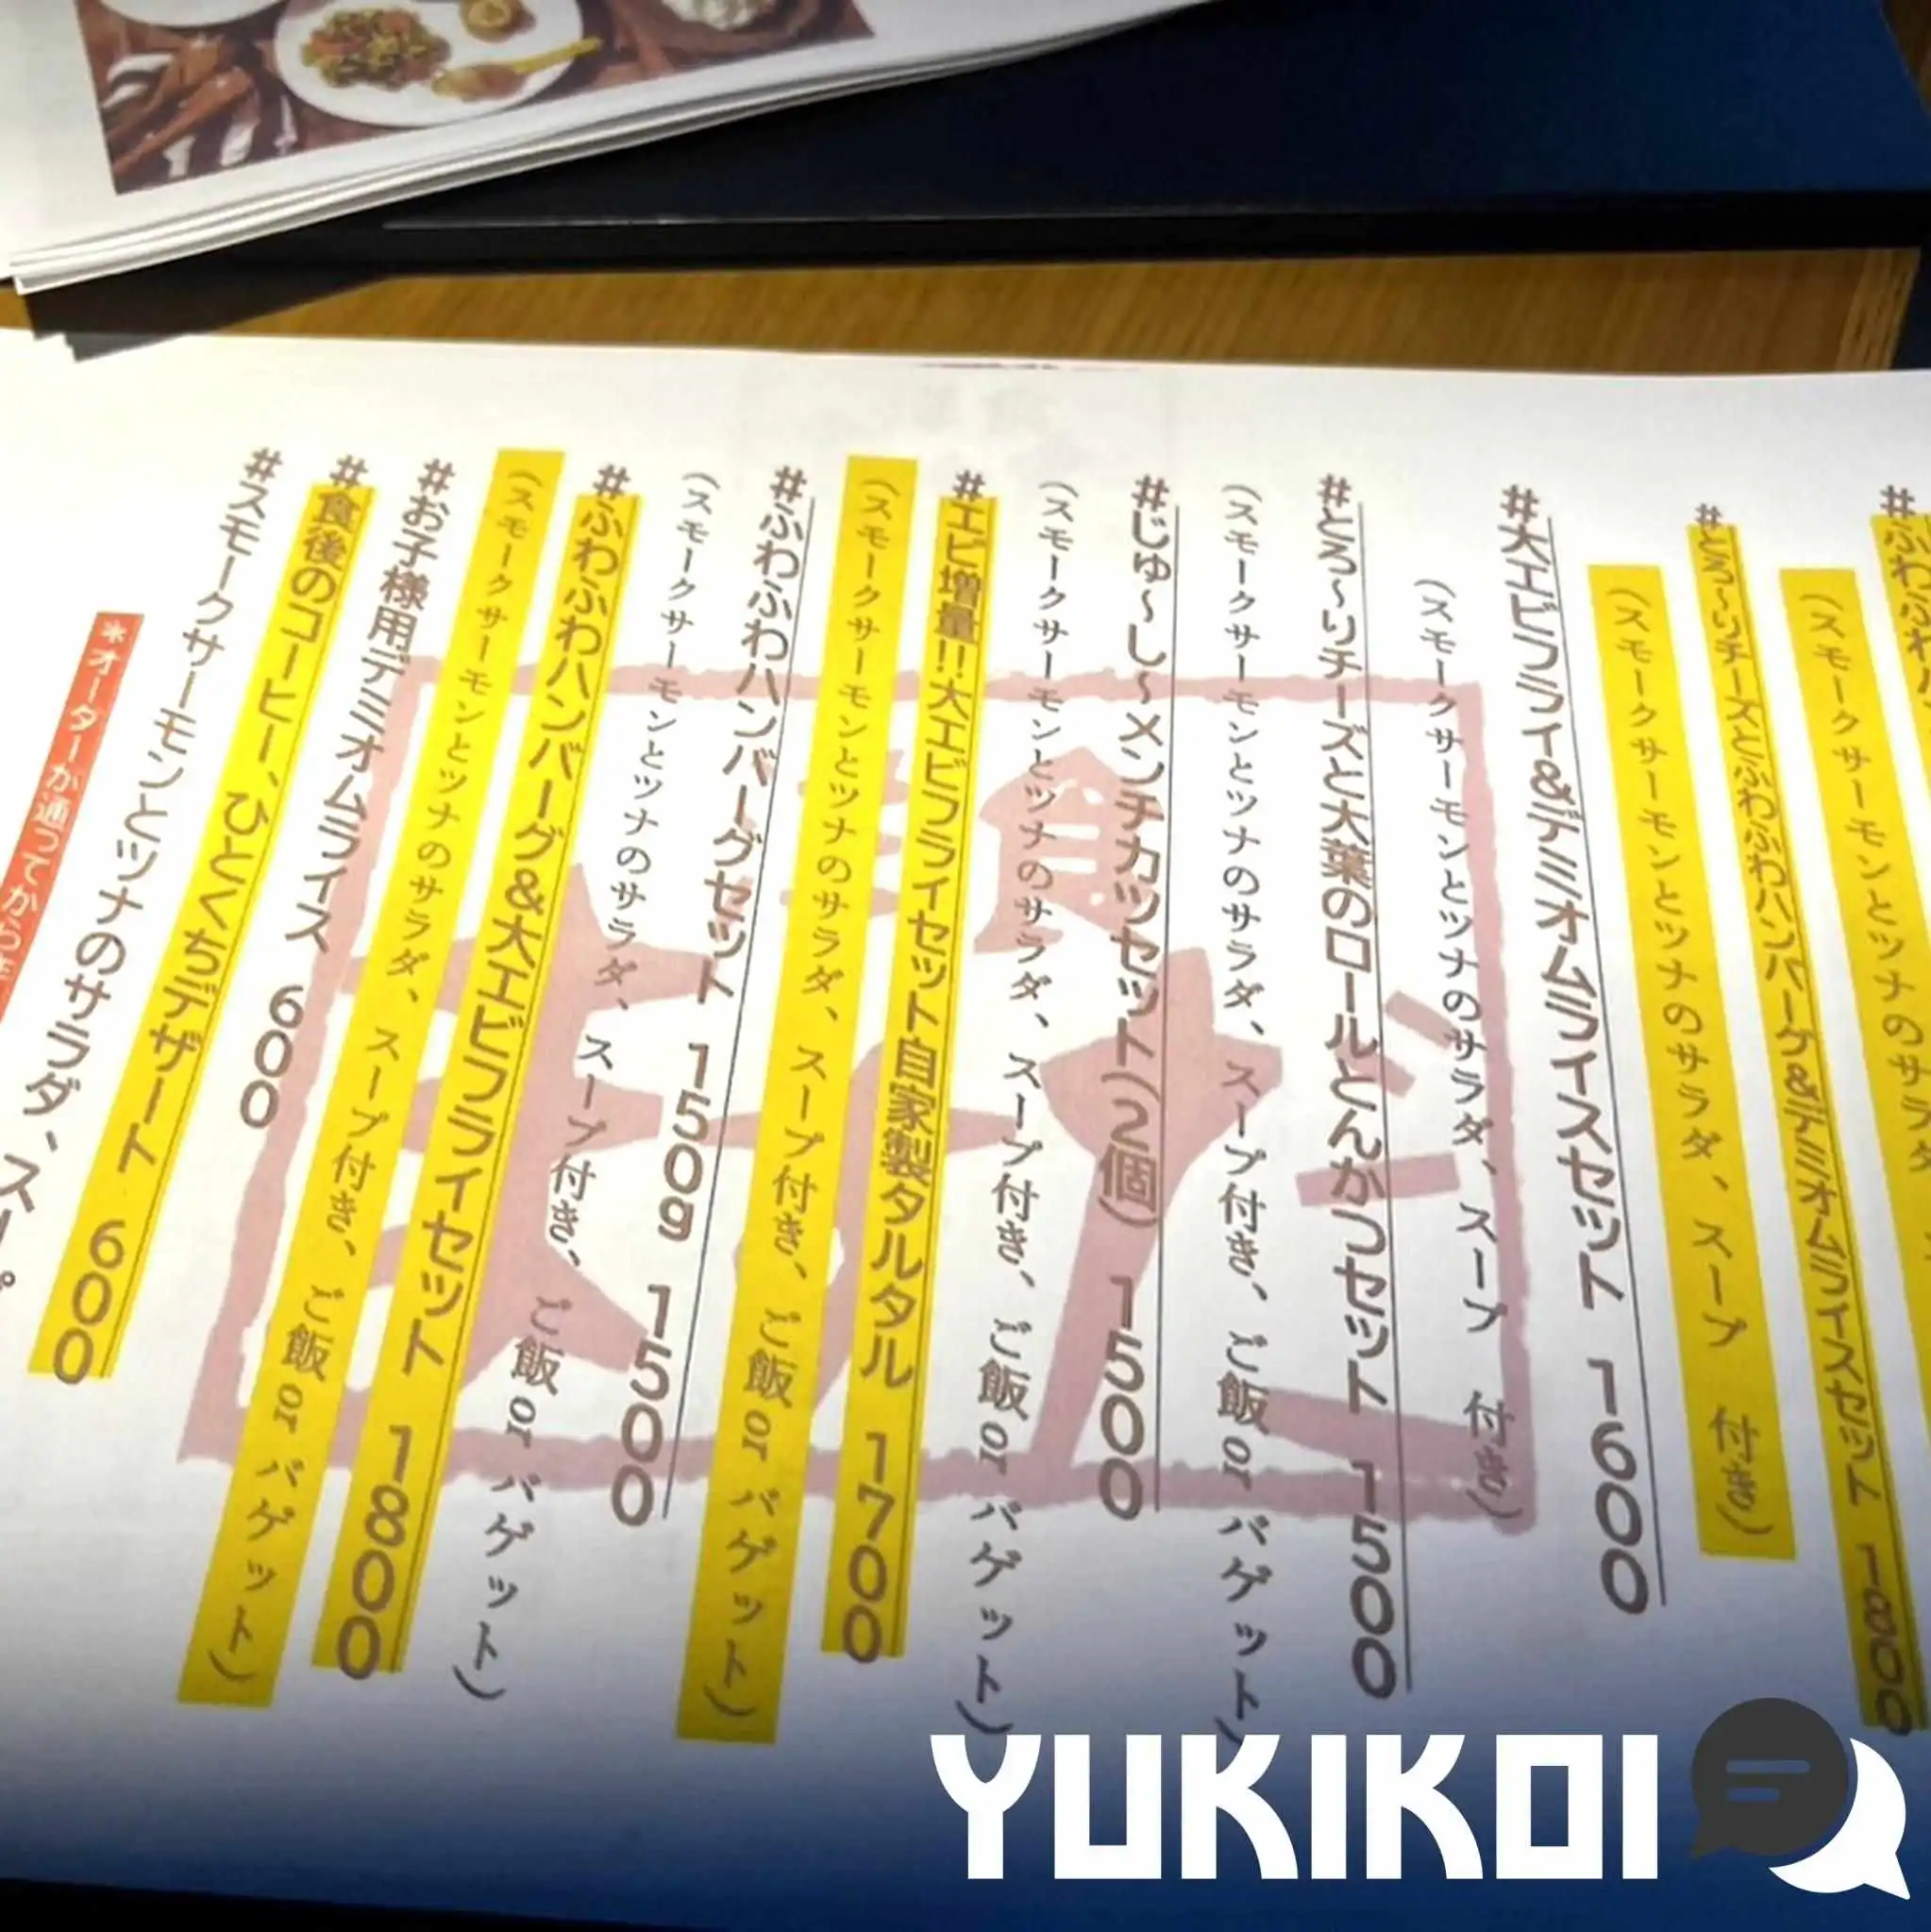 #ふわふわハ
(スモークサーモンとツナのサラダ
#とろ〜りチーズとふわふわハンバーグ&デミオムライスセット 1800
(スモークサーモンとツナのサラダ、スープ 付き)
#大エビフライ&デミオムライスセット 1600
(スモークサーモンとツナのサラダ、スープ 付き)
#とろ〜りチーズと大葉のロールとんかつセット 1500
(スモークサーモンとツナのサラダ、スープ付き、ご飯 or バゲット)
#じゅ〜し〜メンチカツセット(2個) 1500
(スモークサーモンとツナのサラダ、スープ付き、ご飯 or バゲット)
#エビ増量!!大エビフライセット自家製タルタル 1700
(スモークサーモンとツナのサラダ、スープ付き、ご飯 or バゲット)
#ふわふわハンバーグセット 150g 1500
(スモークサーモンとツナのサラダ、スープ付き、ご飯 or バゲット)
#ふわふわハンバーグ&大エビフライセット 1800
(スモークサーモンとツナのサラダ、スープ付き、ご飯 or バゲット)
#お子様用デミオムライス 600
#食後のコーヒー、ひとくちデザート 600
#スモークサーモンとツナのサラダ、スープ
*オーダーが通ってから
YUKIKOI